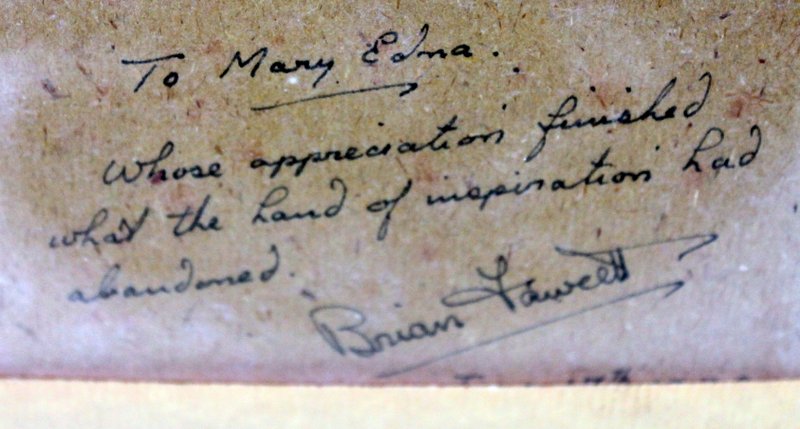 To Mary Edna.
Whose appreciation finished
what the hand of inspiration had
abandoned.
Brian Fawcett